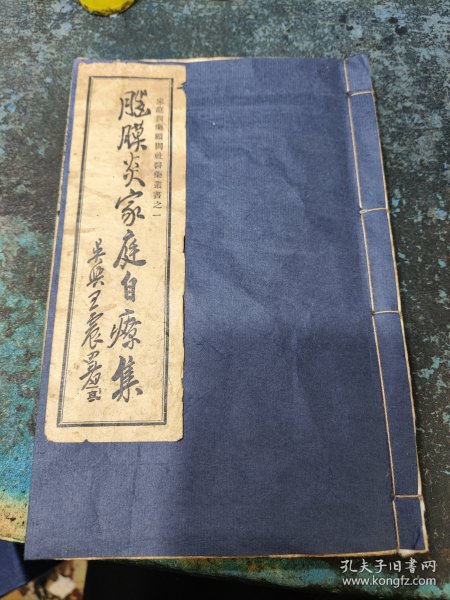 家庭醫藥顧問社醫藥叢書之一
腦膜炎家庭自療集
吳興王震署
孔夫子旧书网
www.kongfz.com